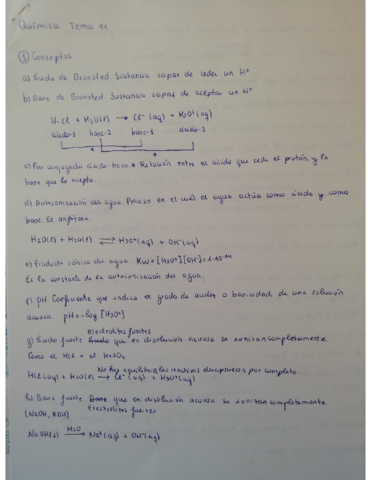 Química Tema 11
① Conceptos
a) Ácido de Bronsted. Sustancia capaz de ceder un H⁺
b) Base de Bronsted. Sustancia capaz de aceptar un H⁺
H-Cl + H₂O(l) → Cl⁻ (aq) + H₃O⁺ (aq)
ácido-1 base-2 base-1 ácido-2
c) Par conjugado ácido-base. Relación entre el ácido que cede el protón, y la
base que lo acepta.
d) Autoionización del agua. Proceso en el cual el agua actúa como ácido y como
base. Es anfótera.
H₂O(l) + H₂O(l) → H₃O⁺(aq) + OH⁻(aq)
e) Producto iónico del agua. Kw = [H₃O⁺][OH⁻] = 1·10⁻¹⁴
Es la constante de la autoionización del agua.
f) pH. Coeficiente que indica el grado de acidez o basicidad de una solución
acuosa. pH = -log [H₃O⁺]
Electrolitos fuertes
g) Ácido fuerte que en disolución acuosa se ionizan completamente
Como el HCl = el
No hay equilibrio, los reactivos desaparecen por completo
HCl(aq) + H₂O(l) → Cl⁻ (aq) + H₃O⁺(aq)
h) Base fuerte Base que en disolución acuosa se ionizan completamente
(NaOH, KOH) Electrolitos fuertes
NaOH(s) H₂O → Na⁺(aq) + OH⁻(aq)